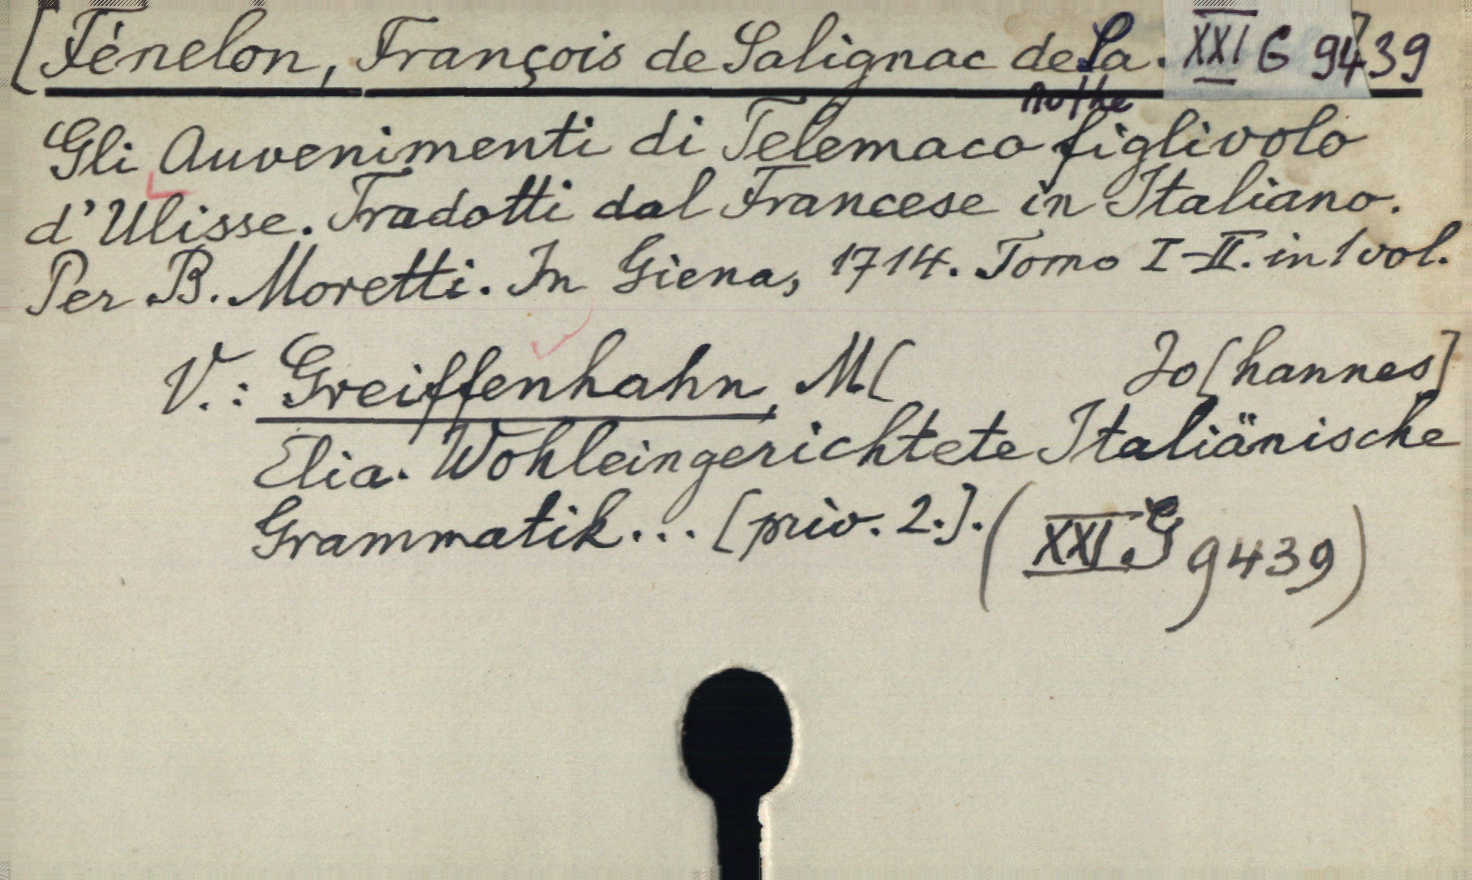 [Fénelon, François de Salignac de La. XXI G 9439]
Mothe
Gli Auvenimenti di Telemaco figlivolo
d'Ulisse. Tradotti dal Francese in Italiano.
Per B. Moretti. In Giena, 1714. Tomo I-II. in 1 vol.
V.: Greiffenhahn, M[ Jo[hannes]
Elia. Wohleingerichtete Italiänische
Grammatik... [priv. 2.]. (XXI. G 9439)